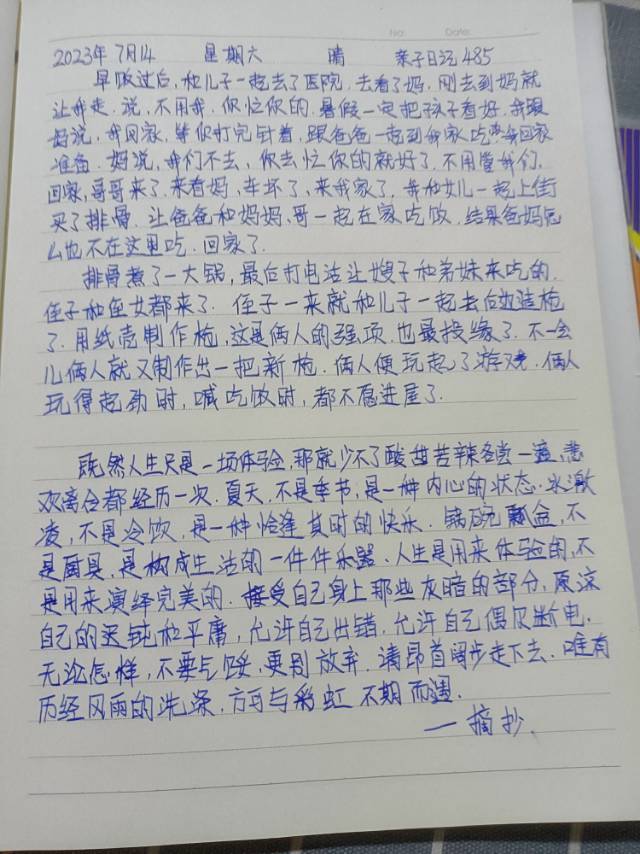 No: Date:
2023年7月14 星期六 晴 亲子日记485
早饭过后,和儿子一起去了医院.去看了妈.刚去到妈就
让我走.说,不用我.你忙你的.暑假一定把孩子看好.我跟
妈说.我回家,等你打完针着.跟爸爸一起到我家吃.我回家
准备.妈说,我们不去,你去忙你的就好了.不用管我们.
回家,哥哥来了.来看妈.车坏了,来我家了.我和女儿一起上街
买了排骨.让爸爸和妈妈、哥一起在家吃饭.结果爸妈怎
么也不在这里吃.回家了.
排骨煮了一大锅,最后打电话让嫂子和弟妹来吃的.
侄子和侄女都来了.侄子一来就和儿子一起去后边造枪
了.用纸壳制作枪,这是俩人的强项.也最投缘了.不一会
儿俩人就又制作出一把新枪.俩人便玩起了游戏.俩人
玩得起劲时,喊吃饭时,都不愿进屋了.
既然人生只是一场体验,那就少不了酸甜苦辣各尝一遍,悲
欢离合都经历一次.夏天,不是季节,是一种内心的状态.冰激
凌,不是冷饮,是一种恰逢其时的快乐.锅碗瓢盆,不
是厨具,是构成生活的一件件乐器.人生是用来体验的,不
是用来演绎完美的.接受自己身上那些灰暗的部分,原谅
自己的迟钝和平庸,允许自己出错.允许自己偶尔断电.
无论怎样,不要气馁,更别放弃.请昂首阔步走下去.唯有
历经风雨的洗涤.方可与彩虹不期而遇.
—摘抄.